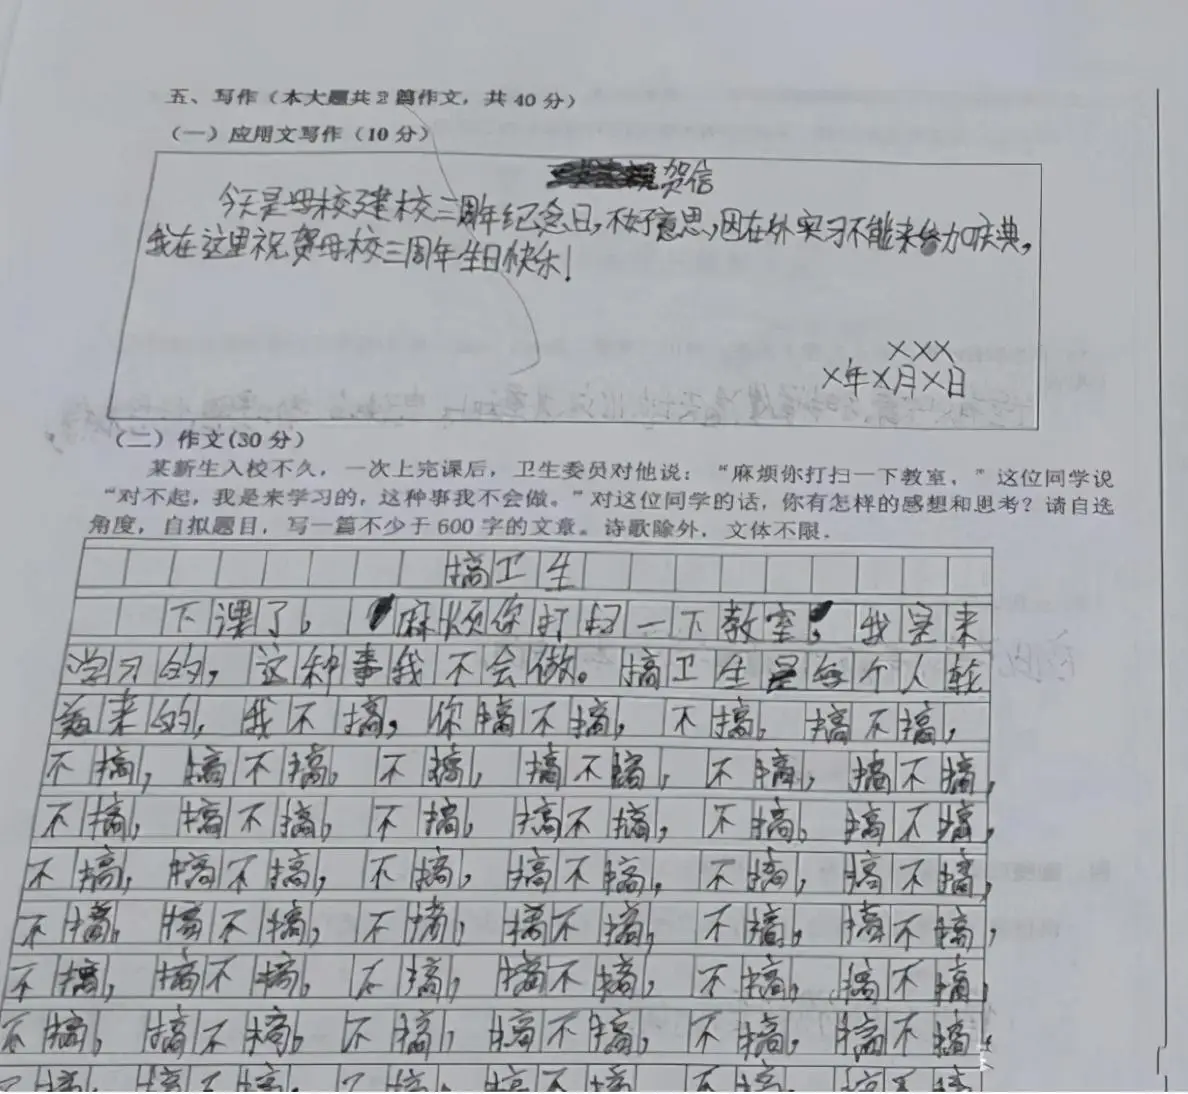 五、写作（本大题共2篇作文，共40分）
（一）应用文写作（10分）
贺信
今天是母校建校三周年纪念日，不好意思，因在外实习不能来参加庆典，
我在这里祝贺母校三周年生日快乐！
XXX
X年X月X日
（二）作文(30分）
某新生入校不久，一次上完课后，卫生委员对他说：“麻烦你打扫一下教室，”这位同学说
“对不起，我是来学习的，这种事我不会做。”对这位同学的话，你有怎样的感想和思考？请自选
角度，自拟题目，写一篇不少于600字的文章。诗歌除外，文体不限．
搞卫生
下课了。麻烦你打扫一下教室。我是来
学习的，这种事我不会做。搞卫生是每个人轮
着来的，我不搞，你搞不搞，不搞。搞不搞，
不搞，搞不搞。不搞，搞不搞，不搞，搞不搞，
不搞，搞不搞。不搞，搞不搞，不搞。搞不搞，
不搞，搞不搞，不搞。搞不搞，不搞，搞不搞，
不搞，搞不搞，不搞，搞不搞，不搞，搞不搞，
不搞，搞不搞，不搞，搞不搞，不搞，搞不搞，
不搞，搞不搞。不搞，搞不搞，不搞，搞不搞，
不搞，搞不搞，不搞，搞不搞，不搞，搞不搞